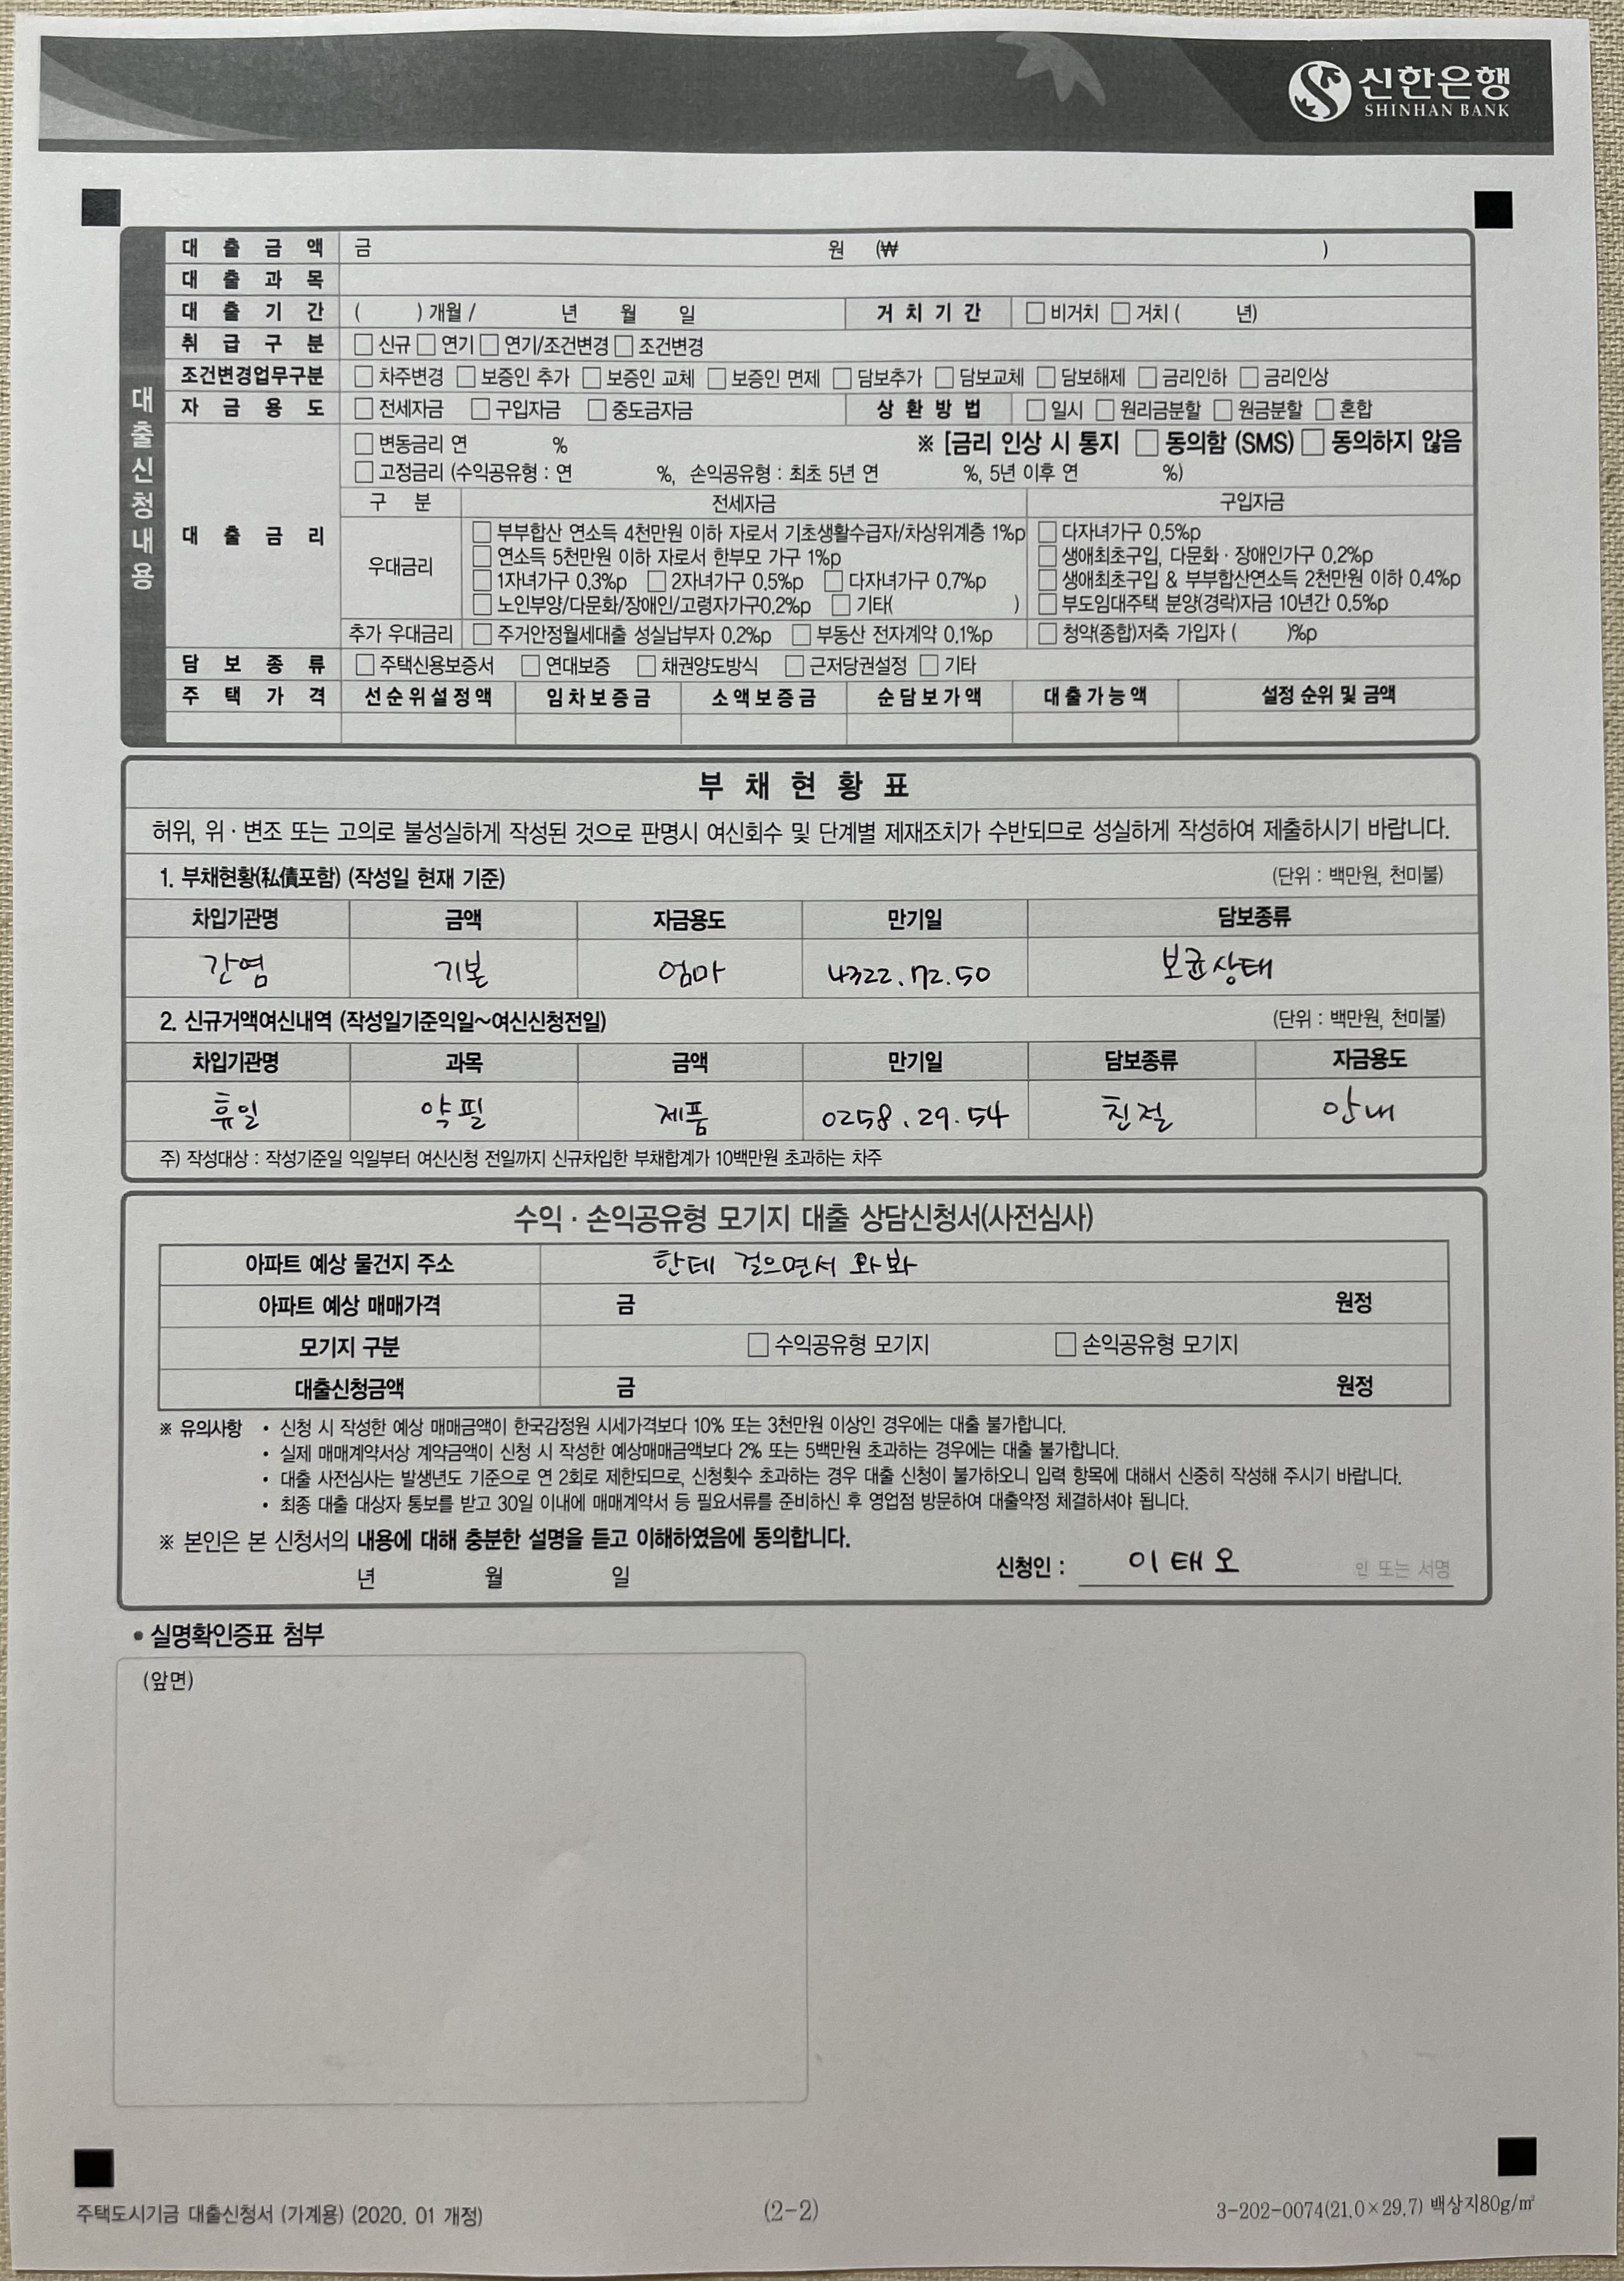 신한은행
SHINHAN BANK
대출신청내용
대 출 금 액 금 원 (₩ )
대 출 과 목
대 출 기 간 ( ) 개월 / 년 월 일 거 치 기 간 □ 비거치 □ 거치 ( 년)
취 급 구 분 □ 신규 □ 연기 □ 연기/조건변경 □ 조건변경
조건변경업무구분 □ 차주변경 □ 보증인 추가 □ 보증인 교체 □ 보증인 면제 □ 담보추가 □ 담보교체 □ 담보해제 □ 금리인하 □ 금리인상
자 금 용 도 □ 전세자금 □ 구입자금 □ 중도금자금 상 환 방 법 □ 일시 □ 원리금분할 □ 원금분할 □ 혼합
□ 변동금리 연 % ※ [금리 인상 시 통지 □ 동의함 (SMS) □ 동의하지 않음
□ 고정금리 (수익공유형 : 연 %, 손익공유형 : 최초 5년 연 %, 5년 이후 연 %)
구 분 전세자금 구입자금
대 출 금 리
우대금리
□ 부부합산 연소득 4천만원 이하 자로서 기초생활수급자/차상위계층 1%p □ 다자녀가구 0.5%p
□ 연소득 5천만원 이하 자로서 한부모 가구 1%p □ 생애최초구입, 다문화 · 장애인가구 0.2%p
□ 1자녀가구 0.3%p □ 2자녀가구 0.5%p □ 다자녀가구 0.7%p □ 생애최초구입 & 부부합산연소득 2천만원 이하 0.4%p
□ 노인부양/다문화/장애인/고령자가구0.2%p □ 기타( ) □ 부도임대주택 분양(경락)자금 10년간 0.5%p
추가 우대금리 □ 주거안정월세대출 성실납부자 0.2%p □ 부동산 전자계약 0.1%p □ 청약(종합)저축 가입자 ( )%p
담 보 종 류 □ 주택신용보증서 □ 연대보증 □ 채권양도방식 □ 근저당권설정 □ 기타
주 택 가 격 선순위설정액 임차보증금 소액보증금 순담보가액 대출가능액 설정 순위 및 금액
부 채 현 황 표
허위, 위 · 변조 또는 고의로 불성실하게 작성된 것으로 판명시 여신회수 및 단계별 제재조치가 수반되므로 성실하게 작성하여 제출하시기 바랍니다.
1. 부채현황(私債포함) (작성일 현재 기준) (단위 : 백만원, 천미불)
차입기관명 금액 자금용도 만기일 담보종류
간염 기본 엄마 4322.72.50 보균상태
2. 신규거액여신내역 (작성일기준익일~여신신청전일) (단위 : 백만원, 천미불)
차입기관명 과목 금액 만기일 담보종류 자금용도
휴일 약필 제품 0258.29.54 친절 안내
주) 작성대상 : 작성기준일 익일부터 여신신청 전일까지 신규차입한 부채합계가 10백만원 초과하는 차주
수익 · 손익공유형 모기지 대출 상담신청서(사전심사)
아파트 예상 물건지 주소 한테 걸으면서 와봐
아파트 예상 매매가격 금 원정
모기지 구분 □ 수익공유형 모기지 □ 손익공유형 모기지
대출신청금액 금 원정
※ 유의사항 • 신청 시 작성한 예상 매매금액이 한국감정원 시세가격보다 10% 또는 3천만원 이상인 경우에는 대출 불가합니다.
• 실제 매매계약서상 계약금액이 신청 시 작성한 예상매매금액보다 2% 또는 5백만원 초과하는 경우에는 대출 불가합니다.
• 대출 사전심사는 발생년도 기준으로 연 2회로 제한되므로, 신청횟수 초과하는 경우 대출 신청이 불가하오니 입력 항목에 대해서 신중히 작성해 주시기 바랍니다.
• 최종 대출 대상자 통보를 받고 30일 이내에 매매계약서 등 필요서류를 준비하신 후 영업점 방문하여 대출약정 체결하셔야 됩니다.
※ 본인은 본 신청서의 내용에 대해 충분한 설명을 듣고 이해하였음에 동의합니다.
년 월 일 신청인 : 이태오 인 또는 서명
• 실명확인증표 첨부
(앞면)
주택도시기금 대출신청서 (가계용) (2020. 01 개정) (2-2) 3-202-0074(21.0×29.7) 백상지80g/㎡